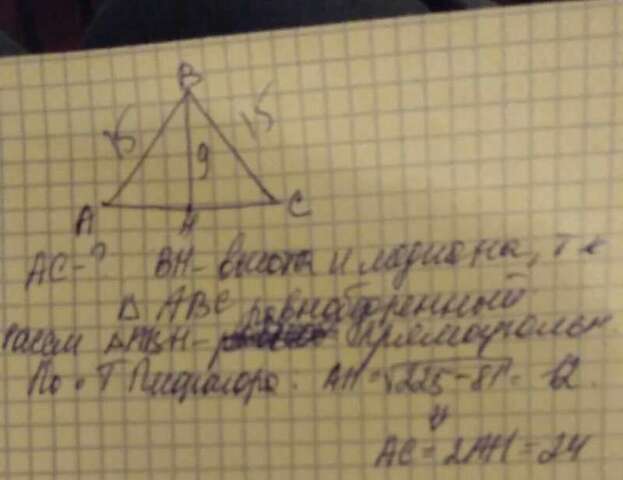 B
15 15
9
A H C
AC-? BH- высота и медиана, т к
Δ ABC равнобедренный
Рассм ΔABH- прямоугольн.
По Т Пифагора: AH = √225-81 = 12.
AC = 2AH = 24